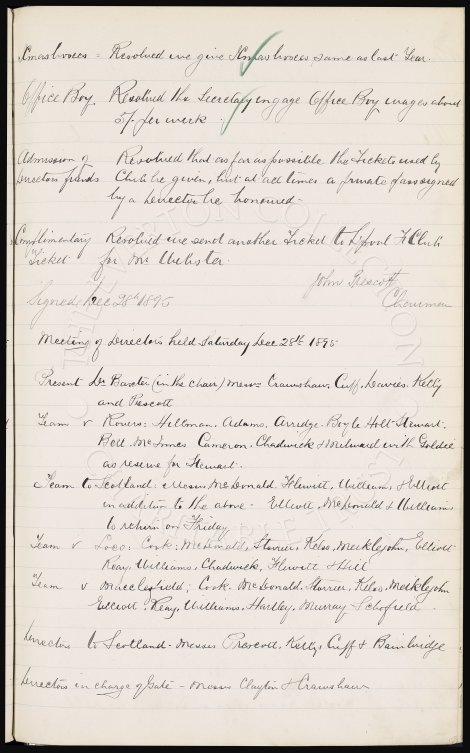 Xmas boxes = Resolved we give Xmas boxes same as last Year.
Office Boy. Resolved the Secretary engage Office Boy wages about
5/- per week
Admission of Resolved that as far as possible the Tickets used by
Directors friends Club be given, but at all times a private pass signed
by a Director be honoured.
Complimentary Resolved we send another Ticket to L'pool F Club
Ticket for Mr Webster.
John Prescott
Signed Dec 28th 1895 Chairman
Meeting of Directors held Saturday Dec 28th 1895
Present Dr Baxter (in the chair) Messrs Crawshaw, Cuff, Davies, Kelly
and Prescott
Team v Rovers: Hillman. Adams. Arridge. Boyle Holt Stewart.
Bell. McInnes Cameron. Chadwick & Milward with Goldie
as reserve for Stewart.
Team to Scotland: Messrs McDonald. Flewitt, Williams & Elliott
in addition to the above - Elliott, McDonald & Williams
to return on Friday
Team v Loco: Cook. McDonald, Storrier, Kelso, Meiklejohn, Elliott
Reay, Williams, Chadwick, Flewitt & Hill
Team v Macclesfield; Cook. McDonald. Storrier, Kelso, Meiklejohn
Elliott. Reay, Williams, Hartley, Murray & Schofield.
Directors to Scotland. Messrs Prescott, Kelly, Cuff & Bainbridge
Directors in charge of Gate - Messrs Clayton & Crawshaw